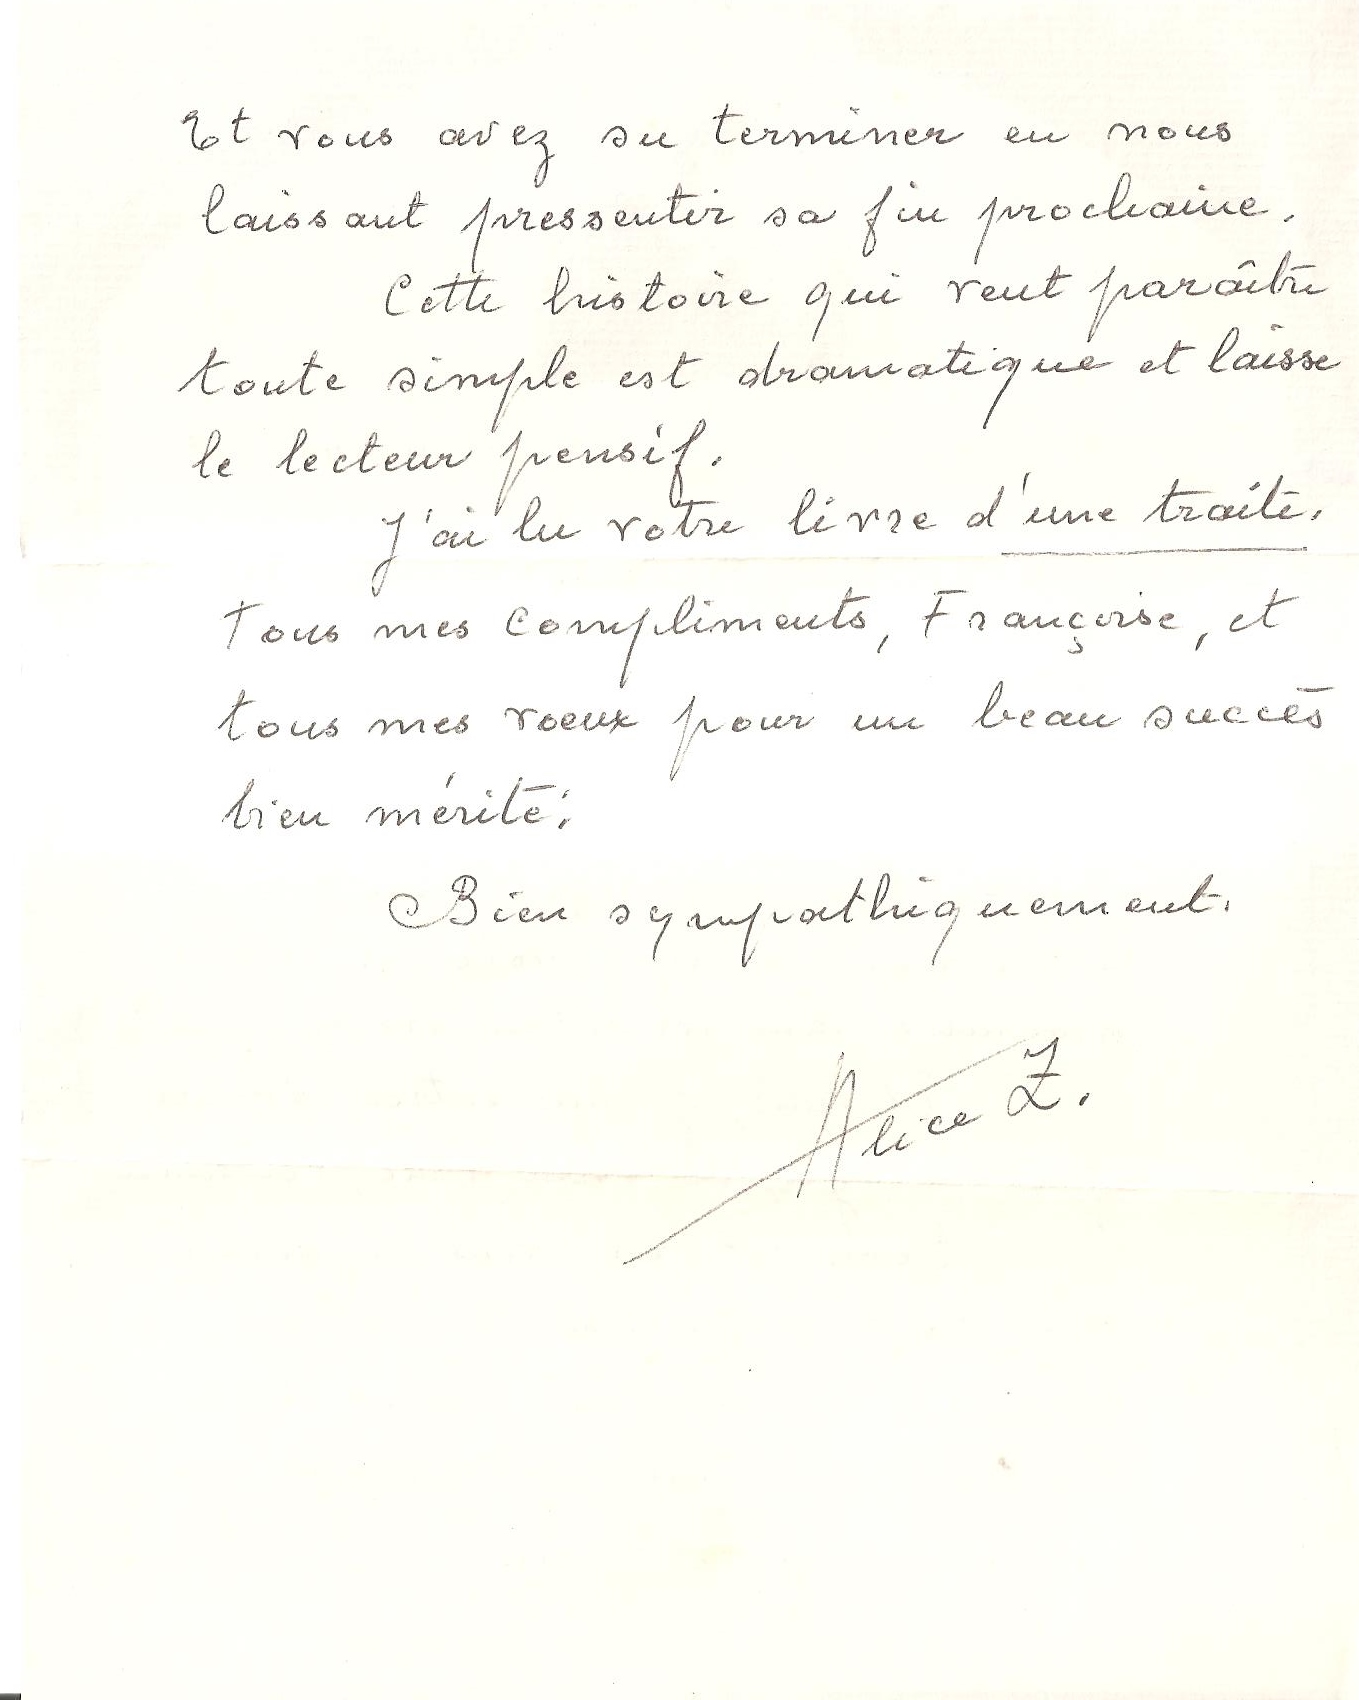 Et vous avez su terminer en nous
laissant pressentir sa fin prochaine.
Cette histoire qui veut paraître
toute simple est dramatique et laisse
le lecteur pensif.
J'ai lu votre livre d'une traite.
Tous mes compliments, Françoise, et
tous mes voeux pour un beau succès
bien mérité.
Bien sympathiquement.
Alice Z.